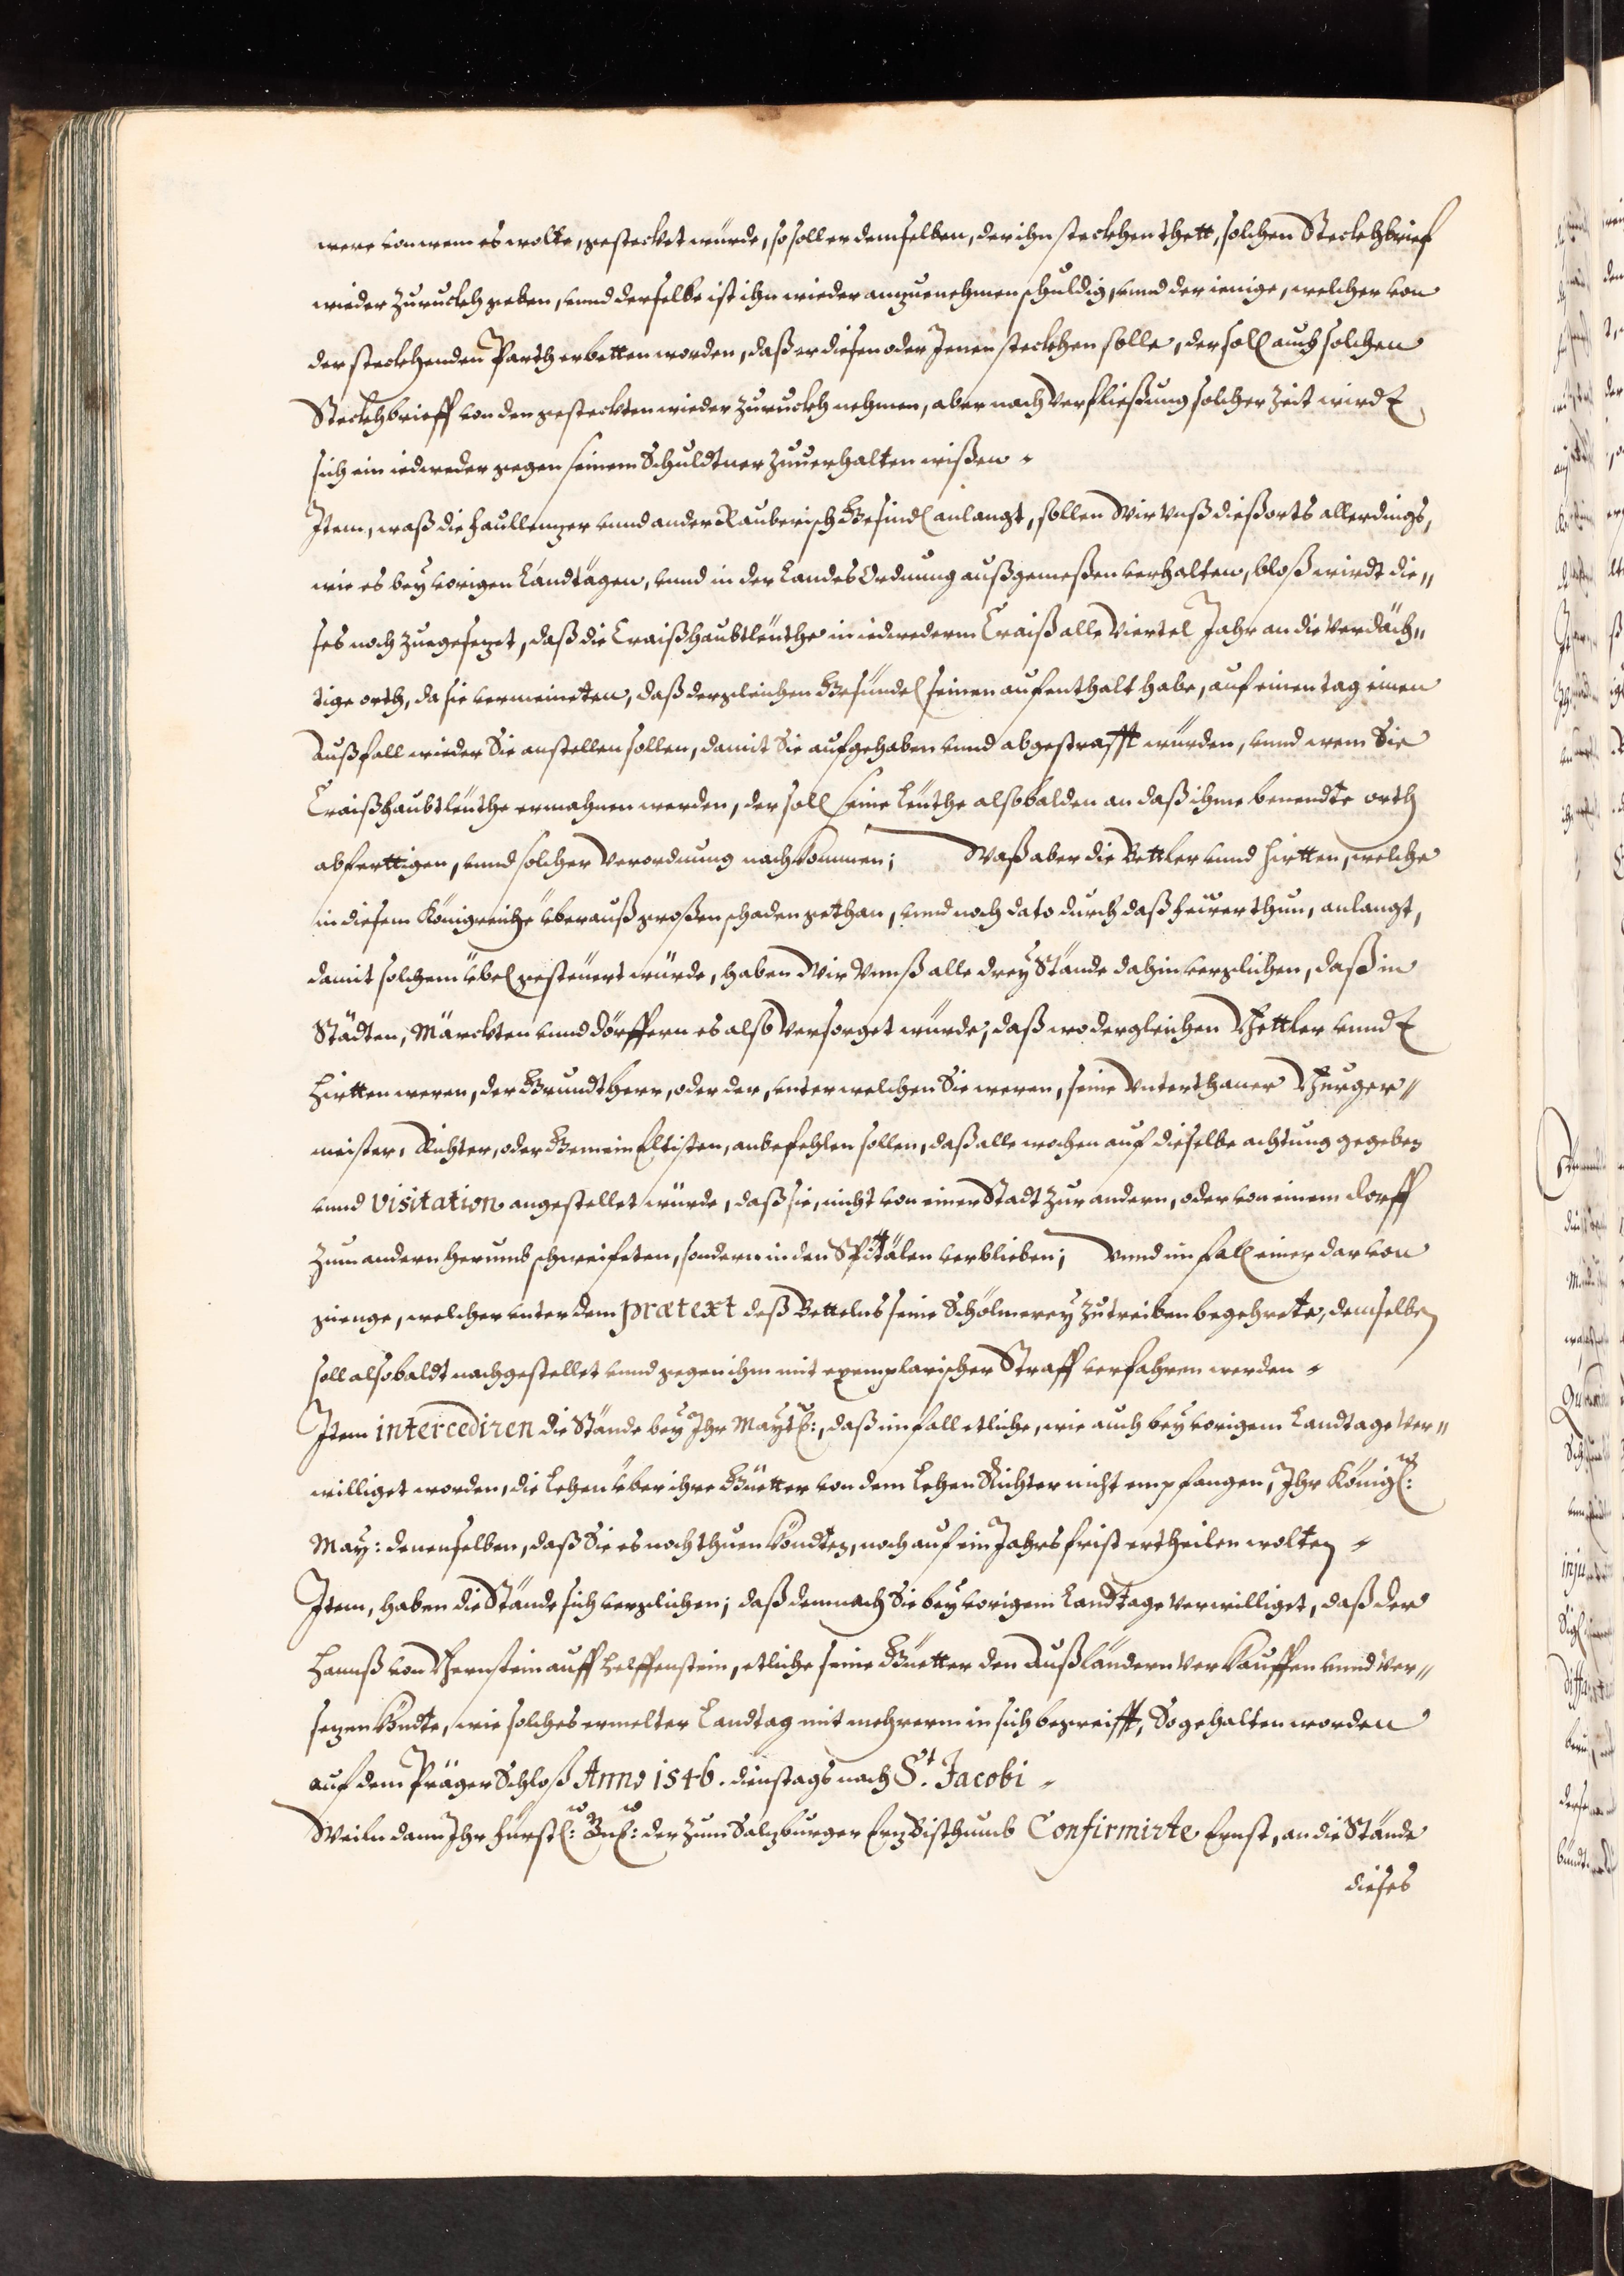 were von wem es wolte, gesteckt würde, so soll er demselben, der ihn steckhen thett, solchen Steckhbrief
wieder zuruckh geben, vnnd derselbe ist ihn wieder anzuenehmen schuldig, vnnd der ienige, welcher von
der steckhenden Parth erbetten worden, daß er diesen oder Jenen steckhen solle, der soll auch solchen
Steckhbrieff von den gesteckten wieder zuruckh nehmen, aber nach Verfließung solcher Zeit wirdt
sich ein iedweder gegen seinem Schuldtner zuuerhalten wißen.
Item, waß die Faullenzer vnnd ander Rauberisch Gesindl anlangt, sollen Wir Vnß dießorts allerdings,
wie es bey vorigen Landtägen, vnnd in der Landes Ordnung außgemeßen verhalten, bloß wirdt die„
ses noch zuegesezet, daß die Craißhaubtleüthe in iedwederm Craiß alle Viertel Jahr an die Verdäch„
tige orth, da sie vermeineten, daß dergleichen Gesündel seinen aufenthalt habe, auf einen tag einen
Außfall wieder Sie anstellen sollen, damit Sie aufgehaben vnnd abgestrafft würden, vnnd wem Sie
Craißhaubtleüthe ermahnen werden, der soll seine Leüthe alsobalden an daß ihme benendte orth
abferttigen, vnnd solcher Verordnung nachkommen; Waß aber die Bettler vnnd Hirtten, welche
in diesem Königreiche überauß großen schaden gethan, vnnd noch dato durch daß feüer thun, anlangt,
damit solchem übel gesteüert würde, haben Wir Vnnß alle drey Stände dahin verglichen, daß in
Städten, Märckten vnnd dörffern es also Versorget würde, daß wo dergleichen Bettler vnnd
Hirtten weren, der Grundtherr, oder der, vnter welchen Sie weren, seine Vnterthaner Burger„
meister, Richter, oder Gemein Eltisten, anbefehlen sollen, daß alle wochen auf dieselbe achtung gegeben
vnnd Visitation angestellet würde, daß sie, nicht von einer Stadt zur andern, oder von einem dorff
zum andern herumb schweifeten, sondern in den Spitälen verblieben; Vnnd im fall einer darvon
gienge, welcher vnter dem prætext deß Bettelns seine Schölmerey zutreiben begehrete, demselben
soll alsobaldt nachgestellet vnnd gegen ihm mit exemplarischer Straff verfahren werden.
Item intercediren die Stände bey Ihr Maytt:, daß im fall etliche, wie auch bey vorigem Landtage Ver„
williget worden, die Lehen über ihre Güetter von dem Lehen Richter nicht empfangen, Ihr Königl:
May: denenselben, daß Sie es noch thuen köndten, noch auf ein Jahrsfrist ertheilen wolten.
Item, haben die Stände sich verglichen; daß demnach Sie bey vorigem Landtage Verwilliget, daß der
Hannß von Bernstein auff Helffenstein, etliche seine Güetter den Außländern Verkauffen vnnd Ver„
sezen köndte, wie solches ermelter Landtag mit mehrerm in sich begreifft, So gehalten worden
auf dem Präger Schloß Anno 1546. dienstags nach St. Jacobi.
Weiln dann Ihr Fürstl: Gn: der zum Salzburger Erz Bisthumb Confirmirte Ernst, an die Stände
dieses